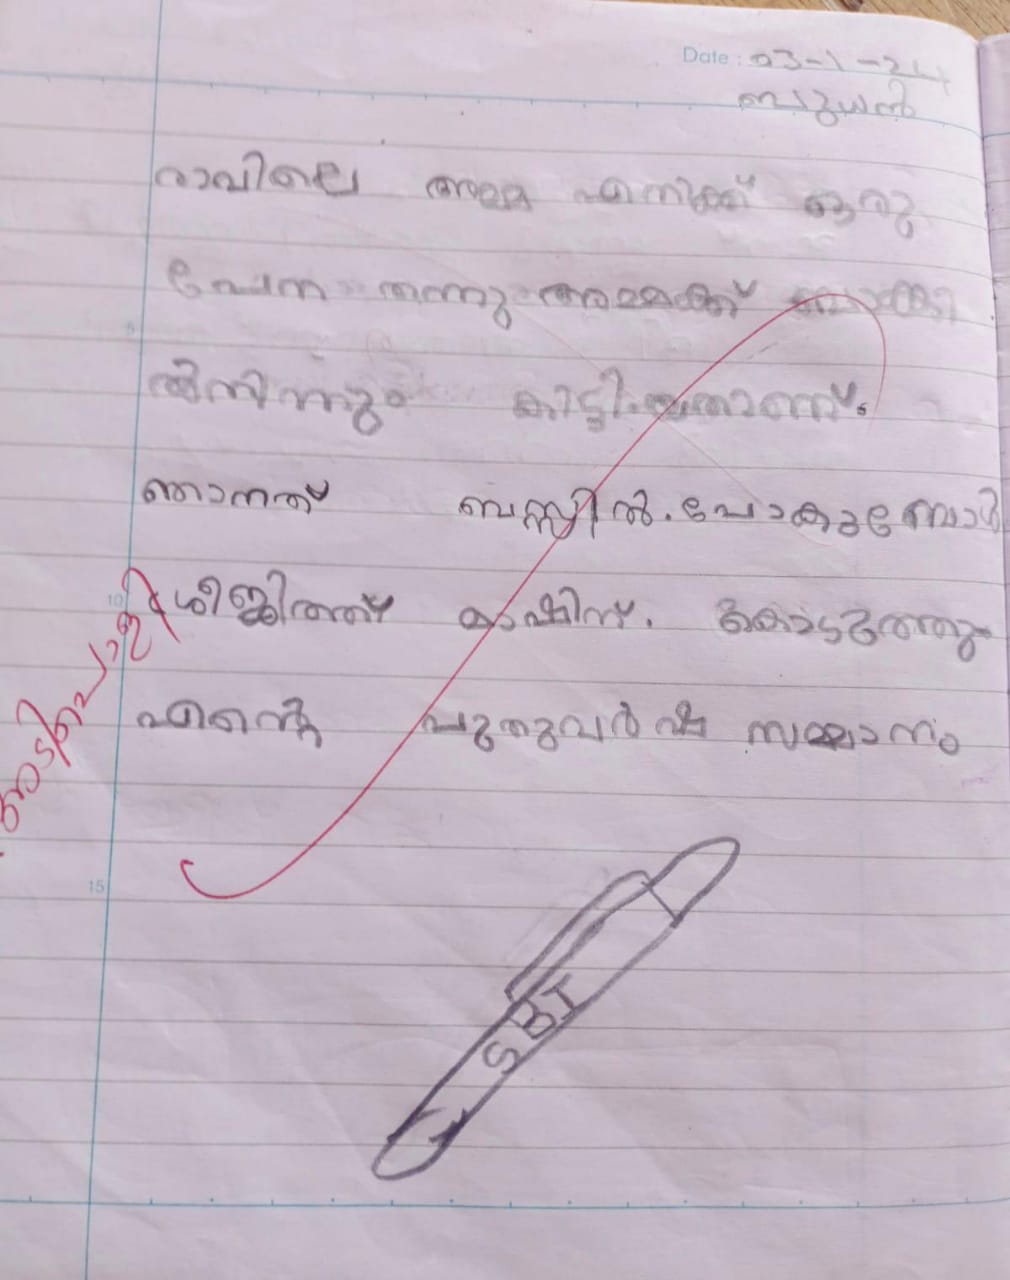 Date : 03-1-24
ബുധൻ
രാവിലെ അമ്മ എനിക്ക് ഒരു
പേന തന്നു അമ്മക്ക് ബാങ്കി
ൽനിന്നും കിട്ടിയതാണ്.
ഞാനത് ബസ്സിൽ. പോകുമ്പോൾ
ശ്രീജിത്ത് കാഷിന്. കൊടുത്തു
എന്റെ പുതുവർഷ സമ്മാനം
അടിപൊളി
10
15
SBI